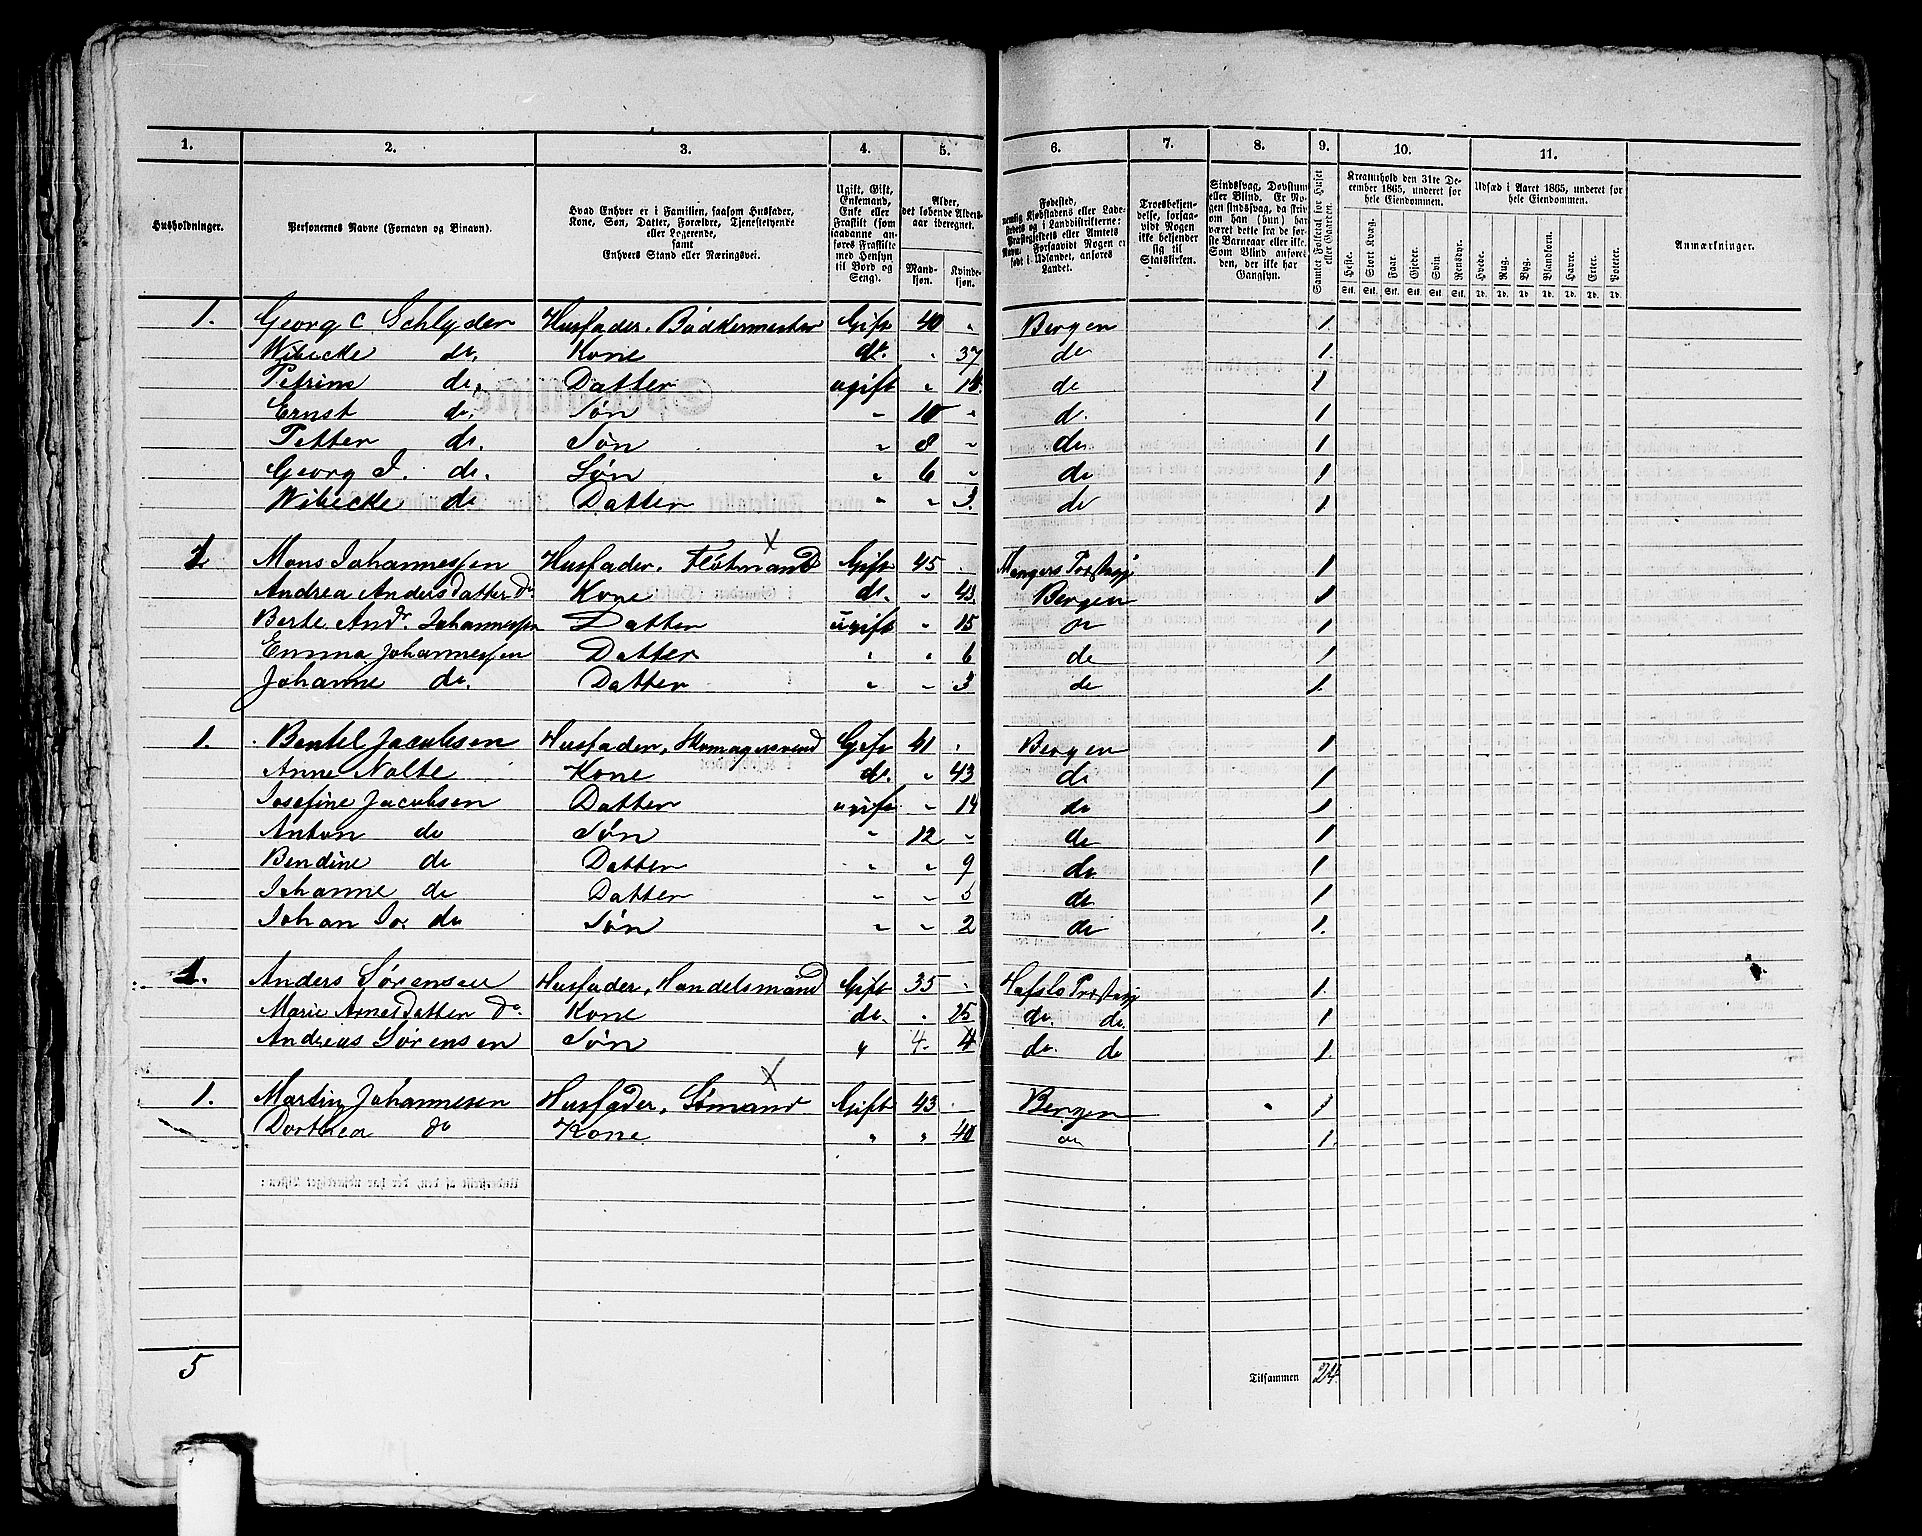 1. 2. 3. 4. 5. 6. 7. 8. 9. 10. 11.
Husholdninger.
Personernes Navne (Fornavn og Binavn).
Hvad Enhver er i Familien, saasom Husfader,
Kone, Søn, Datter, Forældre, Tjenestetyende
eller Logerende,
samt
Enhvers Stand eller Næringsvei.
Ugift, Gift,
Enkemand,
Enke eller
Fraskilt (som
saadanne an-
føres Fraskilte
med Hensyn
til Bord og
Seng).
Alder,
det løbende Alders-
aar iberegnet.
Mand-
kjøn.
Kvinde-
kjøn.
Fødested,
nemlig Kjøbstadens eller Lade-
stedets og i Landdistrikterne:
Præstegjeldets eller Amtets
Navn. Forsaavidt Nogen er
født i Udlandet, anføres
Landet.
Troesbekjen-
delse, forsaa-
vidt Nogen
ikke bekjender
sig til
Statskirken.
Sindssvag, Døvstum
eller Blind. Er No-
gen sindssvag, da skri-
ves om han (hun) har
været dette fra de før-
ste Barneaar eller ikke.
Som Blind anføres
den, der ikke har
Gangsyn.
Samlet Folketal for Huset
eller Gaarden.
Kreaturhold den 31te De-
cember 1865, underet for
hele Eiendommen.
Heste. Stort Kvæg. Faar. Gjeder. Svin. Rensdyr.
Stk. Stk. Stk. Stk. Stk. Stk.
Udsæd i Aaret 1865, underet for
hele Eiendommen.
Hvede. Rug. Byg. Blandkorn. Havre. Erter. Poteter.
Td. Td. Td. Td. Td. Td. Td.
Anmærkninger.
1. Georg C Schlyder Husfader. Bödkermester Gift 40 " Bergen 1.
Wibecke do. Kone do. " 37 do 1.
Petrine do. Datter ugift " do 1
Ernst do. Søn " 10 " d. 1
Petter do. Søn " 8 " do 1
Georg J. do. Søn " 6 " do 1
Wibecke do Datter " " 3. do 1
Mons Johannessen Husfader. Flötmand Gift 45 " Mangers Præstegj 1
Andrea AndersDatter do Kone do. " 43 Bergen 1
Berte And. Johannessen Datter ugift " 15 do 1
Emma Johannessen Datter " " 6 do 1
Johanne do. Datter " " 3 do 1.
1. Bentel Jacobsen Husfader, Skomagersvend Gift 41 " Bergen 1
Anne Nolte Kone do. " 43 do 1
Josefine Jacobsen Datter ugift " 14 do 1
Anton do Søn " 12 " do 1
Bendine do Datter " " 9 do 1
Johanne do Datter " " 5 do 1
Johan Jo. do Søn " " 2 do 1.
1. Anders Sørensen Husfader, Handelsmand Gift 35 " Hafslo Præstegj 1.
Marie ArnesDatter do. Kone do. " 25 do. do. 1
Andreas Sørensen Søn " 4. 4 do. do 1.
1. Martin Johannesen Husfader, Sømand Gift 43 " Bergen 1
Dorthea do Kone " " 40 do 1.
5 Tilsammen 24.